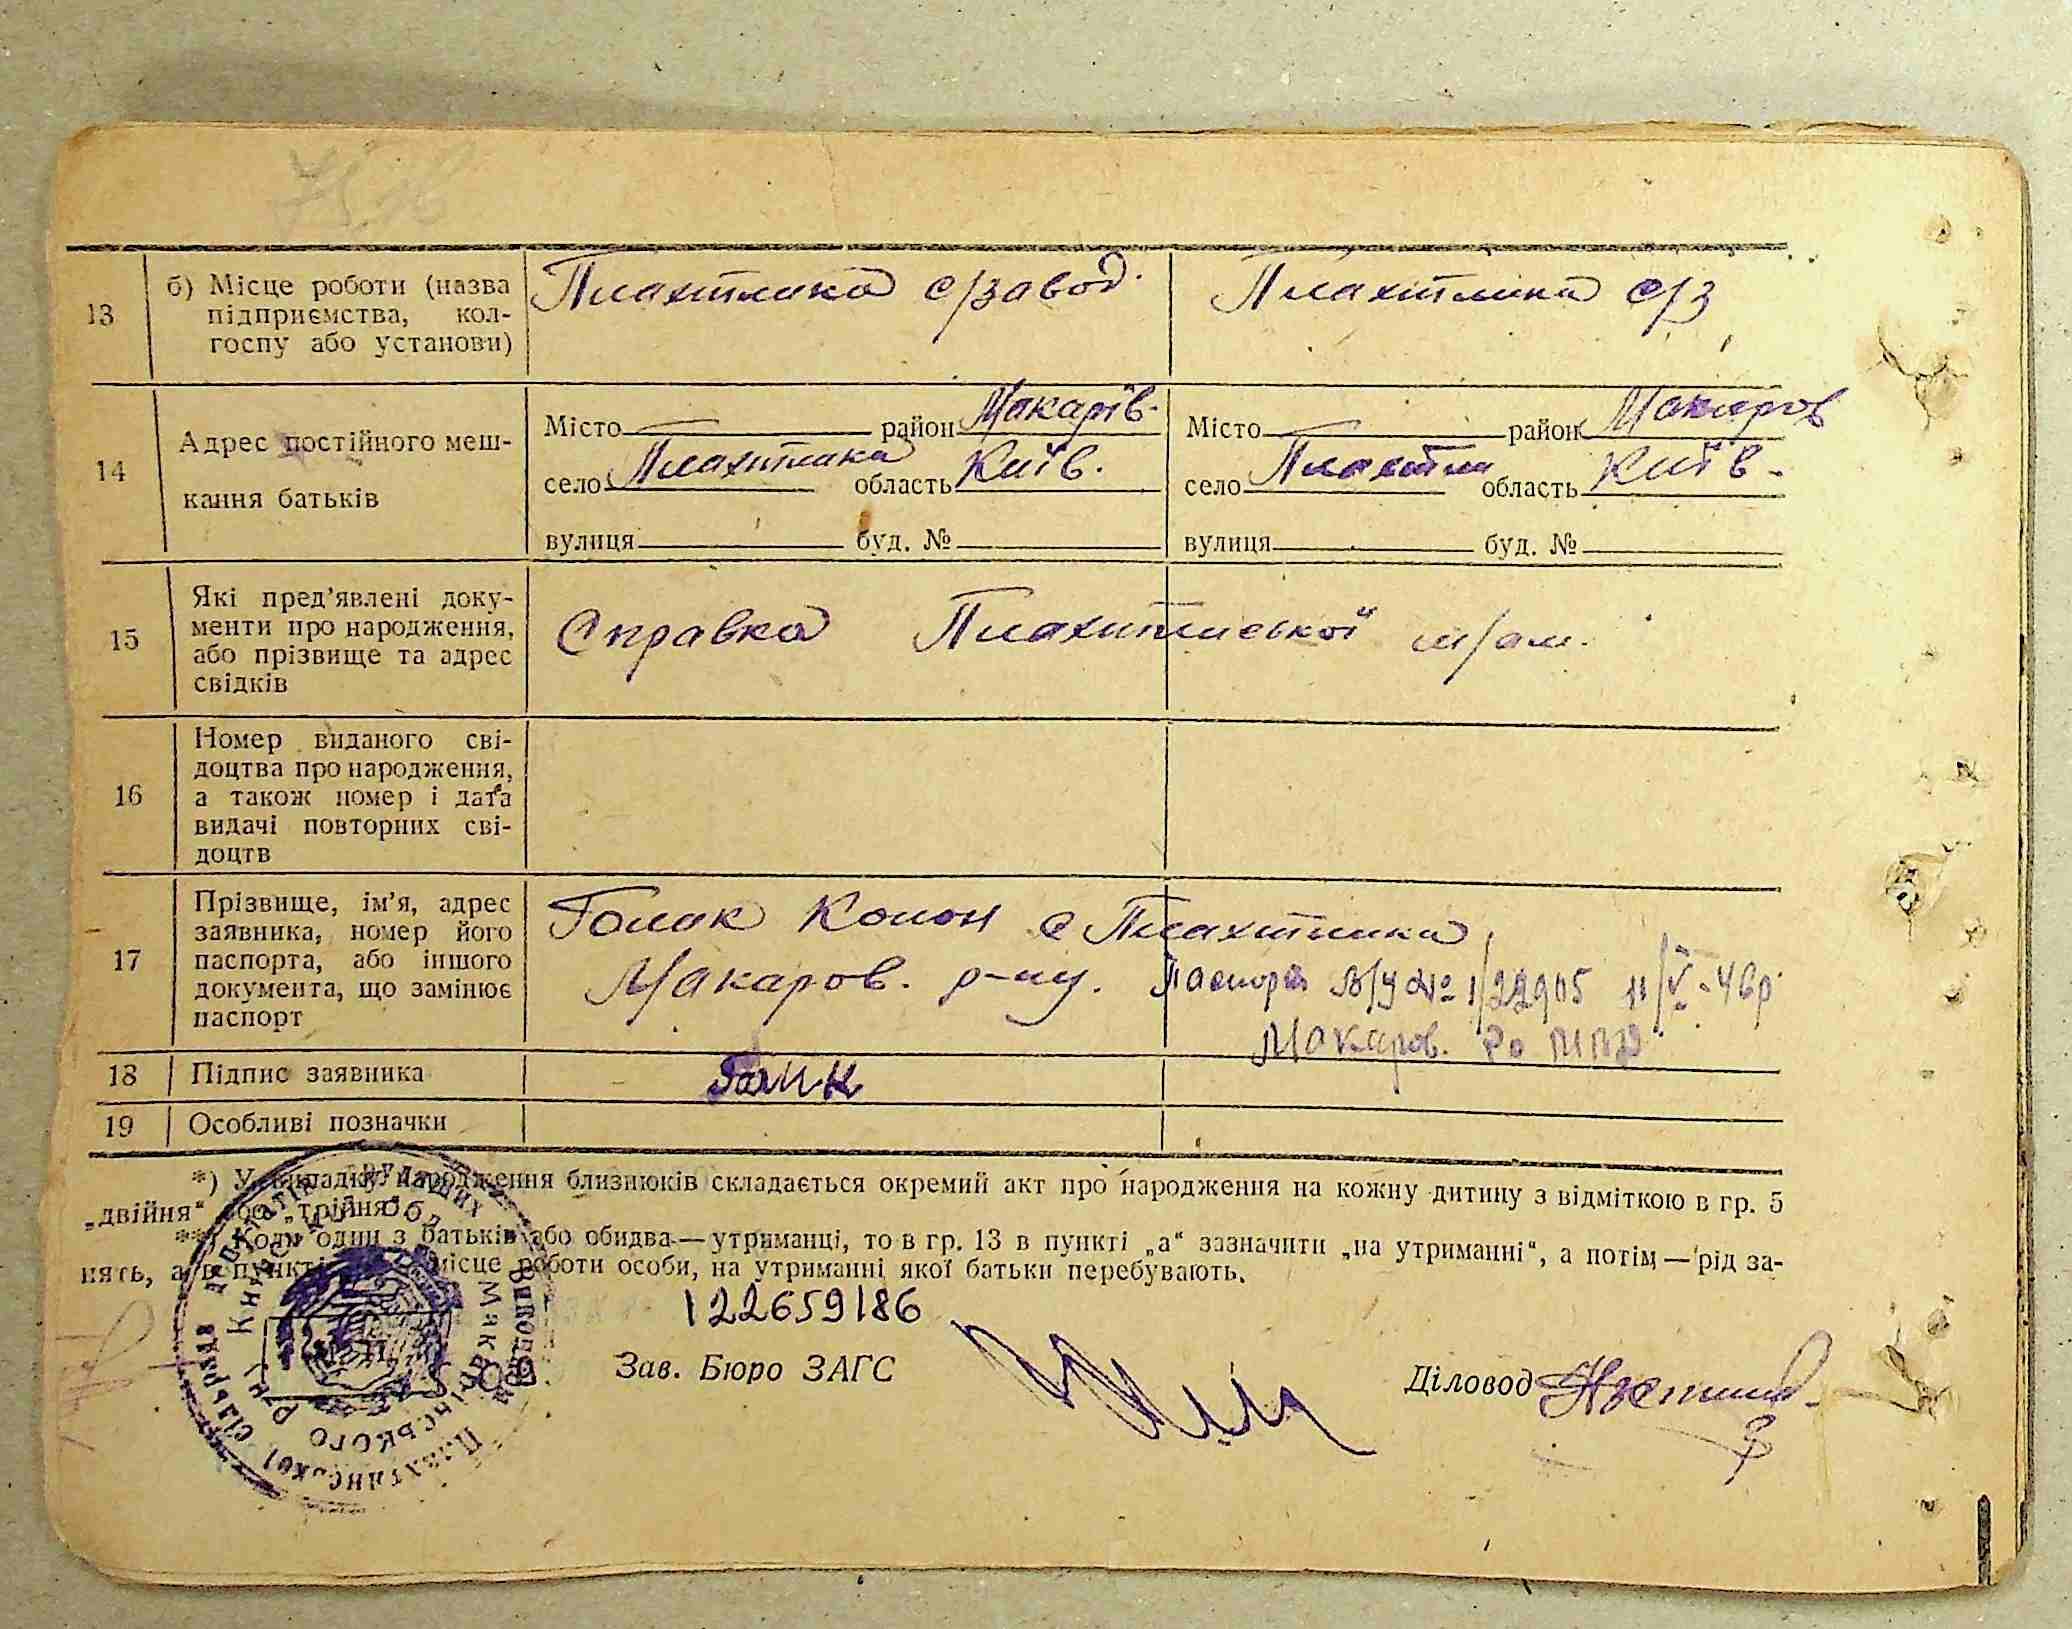 13 б) Місце роботи (назва підприємства, кол-
госпу або установи)
Плахтянка с/завод.
Плахтянка с/з
14 Адрес постійного меш-
кання батьків
Місто район Макарів.
село Плахтянка область Київ.
вулиця буд. №
Місто район Макаров
село Плахтян область Київ.
вулиця буд. №
15 Які пред'явлені доку-
менти про народження,
або прізвище та адрес
свідків
Справка Плахтянської
16 Номер виданого сві-
доцтва про народження,
а також номер і дата
видачі повторних сві-
доцтв
17 Прізвище, ім'я, адрес
заявника, номер його
паспорта, або іншого
документа, що замінює
паспорт
с Плахтянка
Макаров. р-ну. Паспорт
Макаров. Ро
18 Підпис заявника
19 Особливі позначки
*) У випадку народження близнюків складається окремий акт про народження на кожну дитину з відміткою в гр. 5
„двійня“ або „трійня“.
**) Коли один з батьків або обидва — утриманці, то в гр. 13 в пункті „а“ зазначити „на утриманні“, а потім — рід за-
нять, а в пункті місце роботи особи, на утриманні якої батьки перебувають.
122659186
Зав. Бюро ЗАГС
Діловод